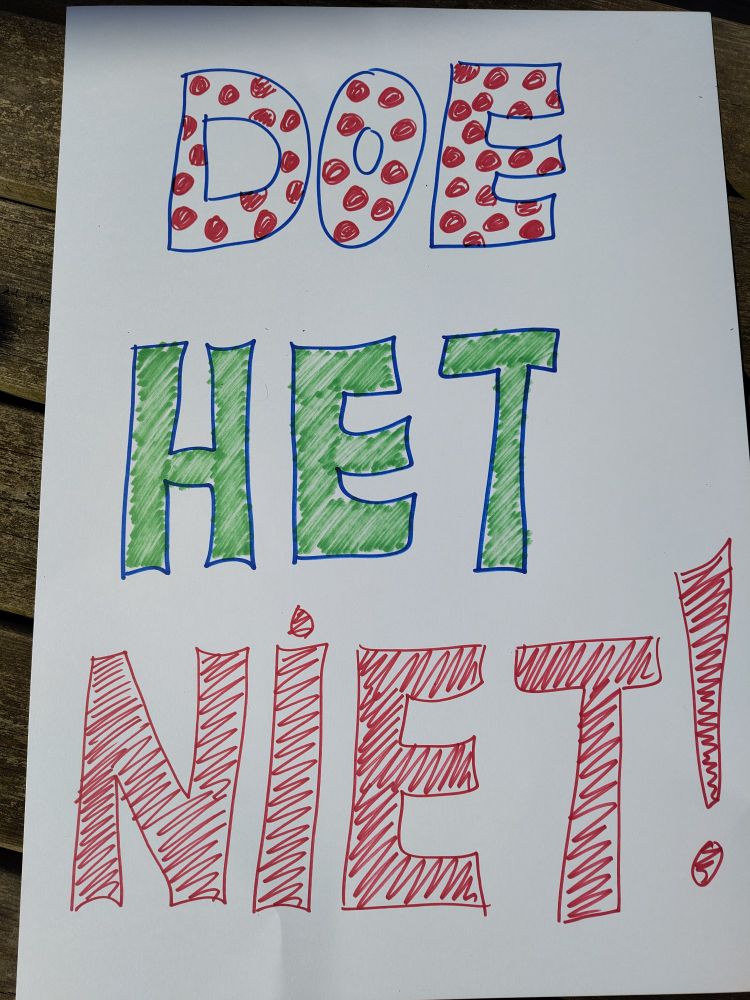 DOE
HET
NiET!